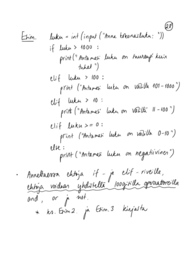 Esim. luku = int(input("Anna kokonaisluku: "))
if luku > 1000:
print("Antamasi luku on suurempi kuin
tuhat")
elif luku > 100:
print("Antamasi luku on välillä 101-1000")
elif luku > 10:
print("Antamasi luku on välillä 11-100")
elif luku >= 0:
print("Antamasi luku on välillä 0-10")
else:
print("Antamasi luku on negatiivinen")
• Annettavan ehtoja if - ja elif - riveille,
ehtoja voidaan yhdistellä loogisilla operaattoreilla
and, or ja not.
* ks. Esim.2 ja Esim.3 kirjasta